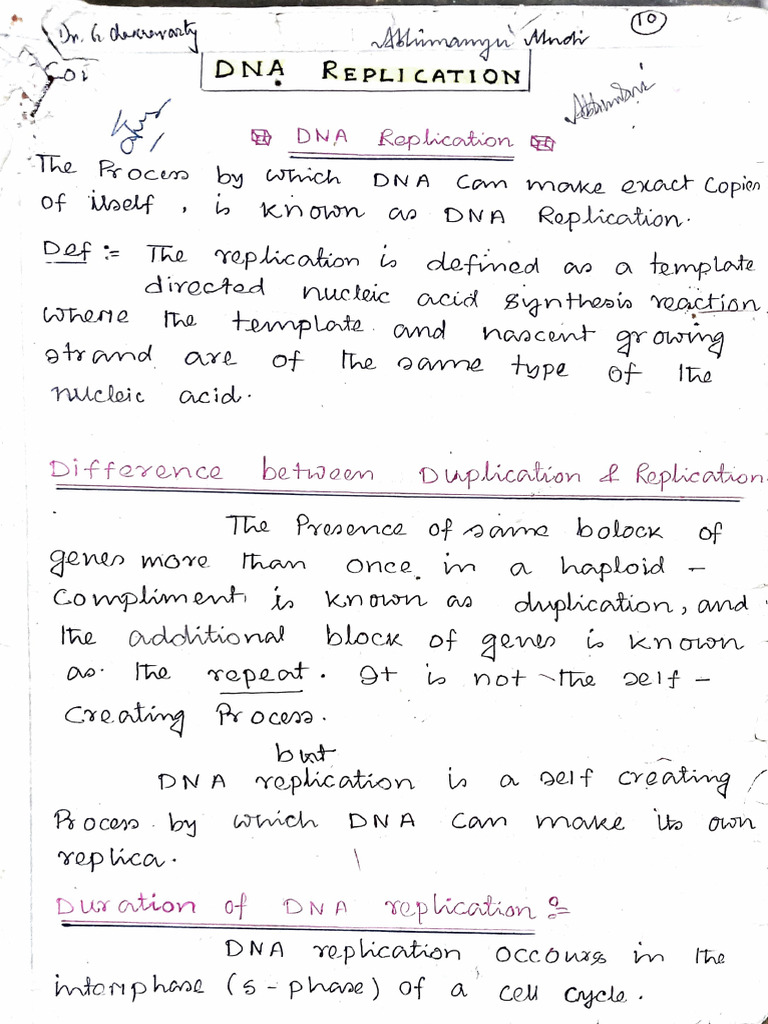 Dr. G. Chakravarty
Abhimanyu
10
DNA REPLICATION
DNA Replication
The Process by which DNA can make exact copies
of itself, is known as DNA Replication.
Def := The replication is defined as a template
directed nucleic acid synthesis reaction
where the template and nascent growing
strand are of the same type of the
nucleic acid.
Difference between Duplication & Replication.
The Presence of same bolock of
genes more than once in a haploid -
Compliment, is known as duplication, and
the additional block of genes is known
as the repeat. It is not the self -
Creating Process.
but
DNA replication is a self creating
Process by which DNA can make its own
replica.
Duration of DNA replication :=
DNA replication occours in the
interphase (s - phase) of a cell cycle.